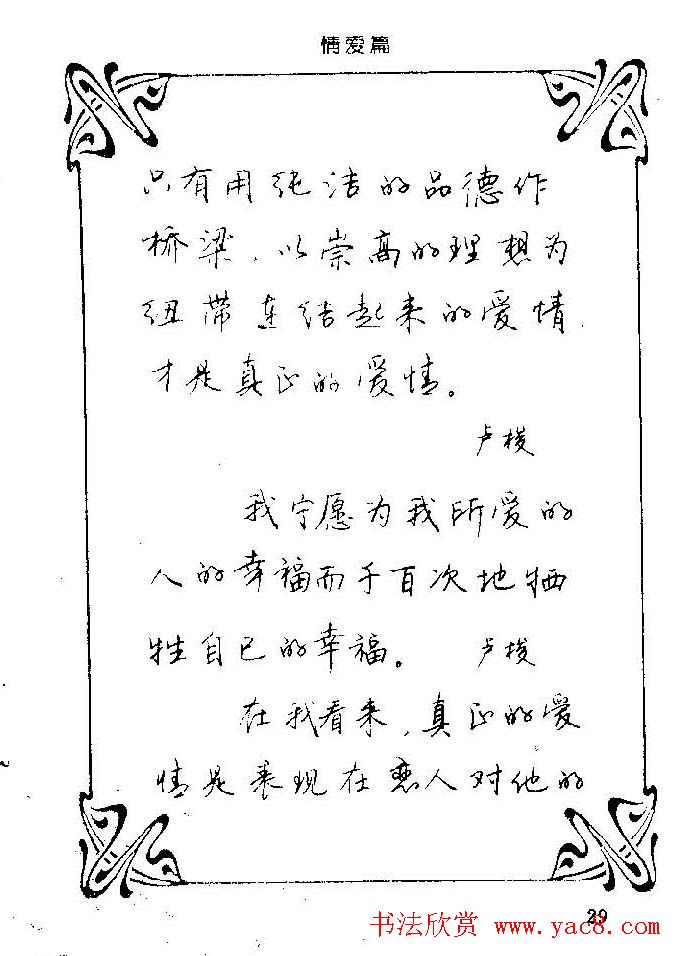 情爱篇
只有用纯洁的品德作
桥梁，以崇高的理想为
纽带连结起来的爱情，
才是真正的爱情。
卢梭
我宁愿为我所爱的
人的幸福而千百次地牺
牲自己的幸福。 卢梭
在我看来，真正的爱
情是表现在恋人对他的
29
书法欣赏 www.yac8.com